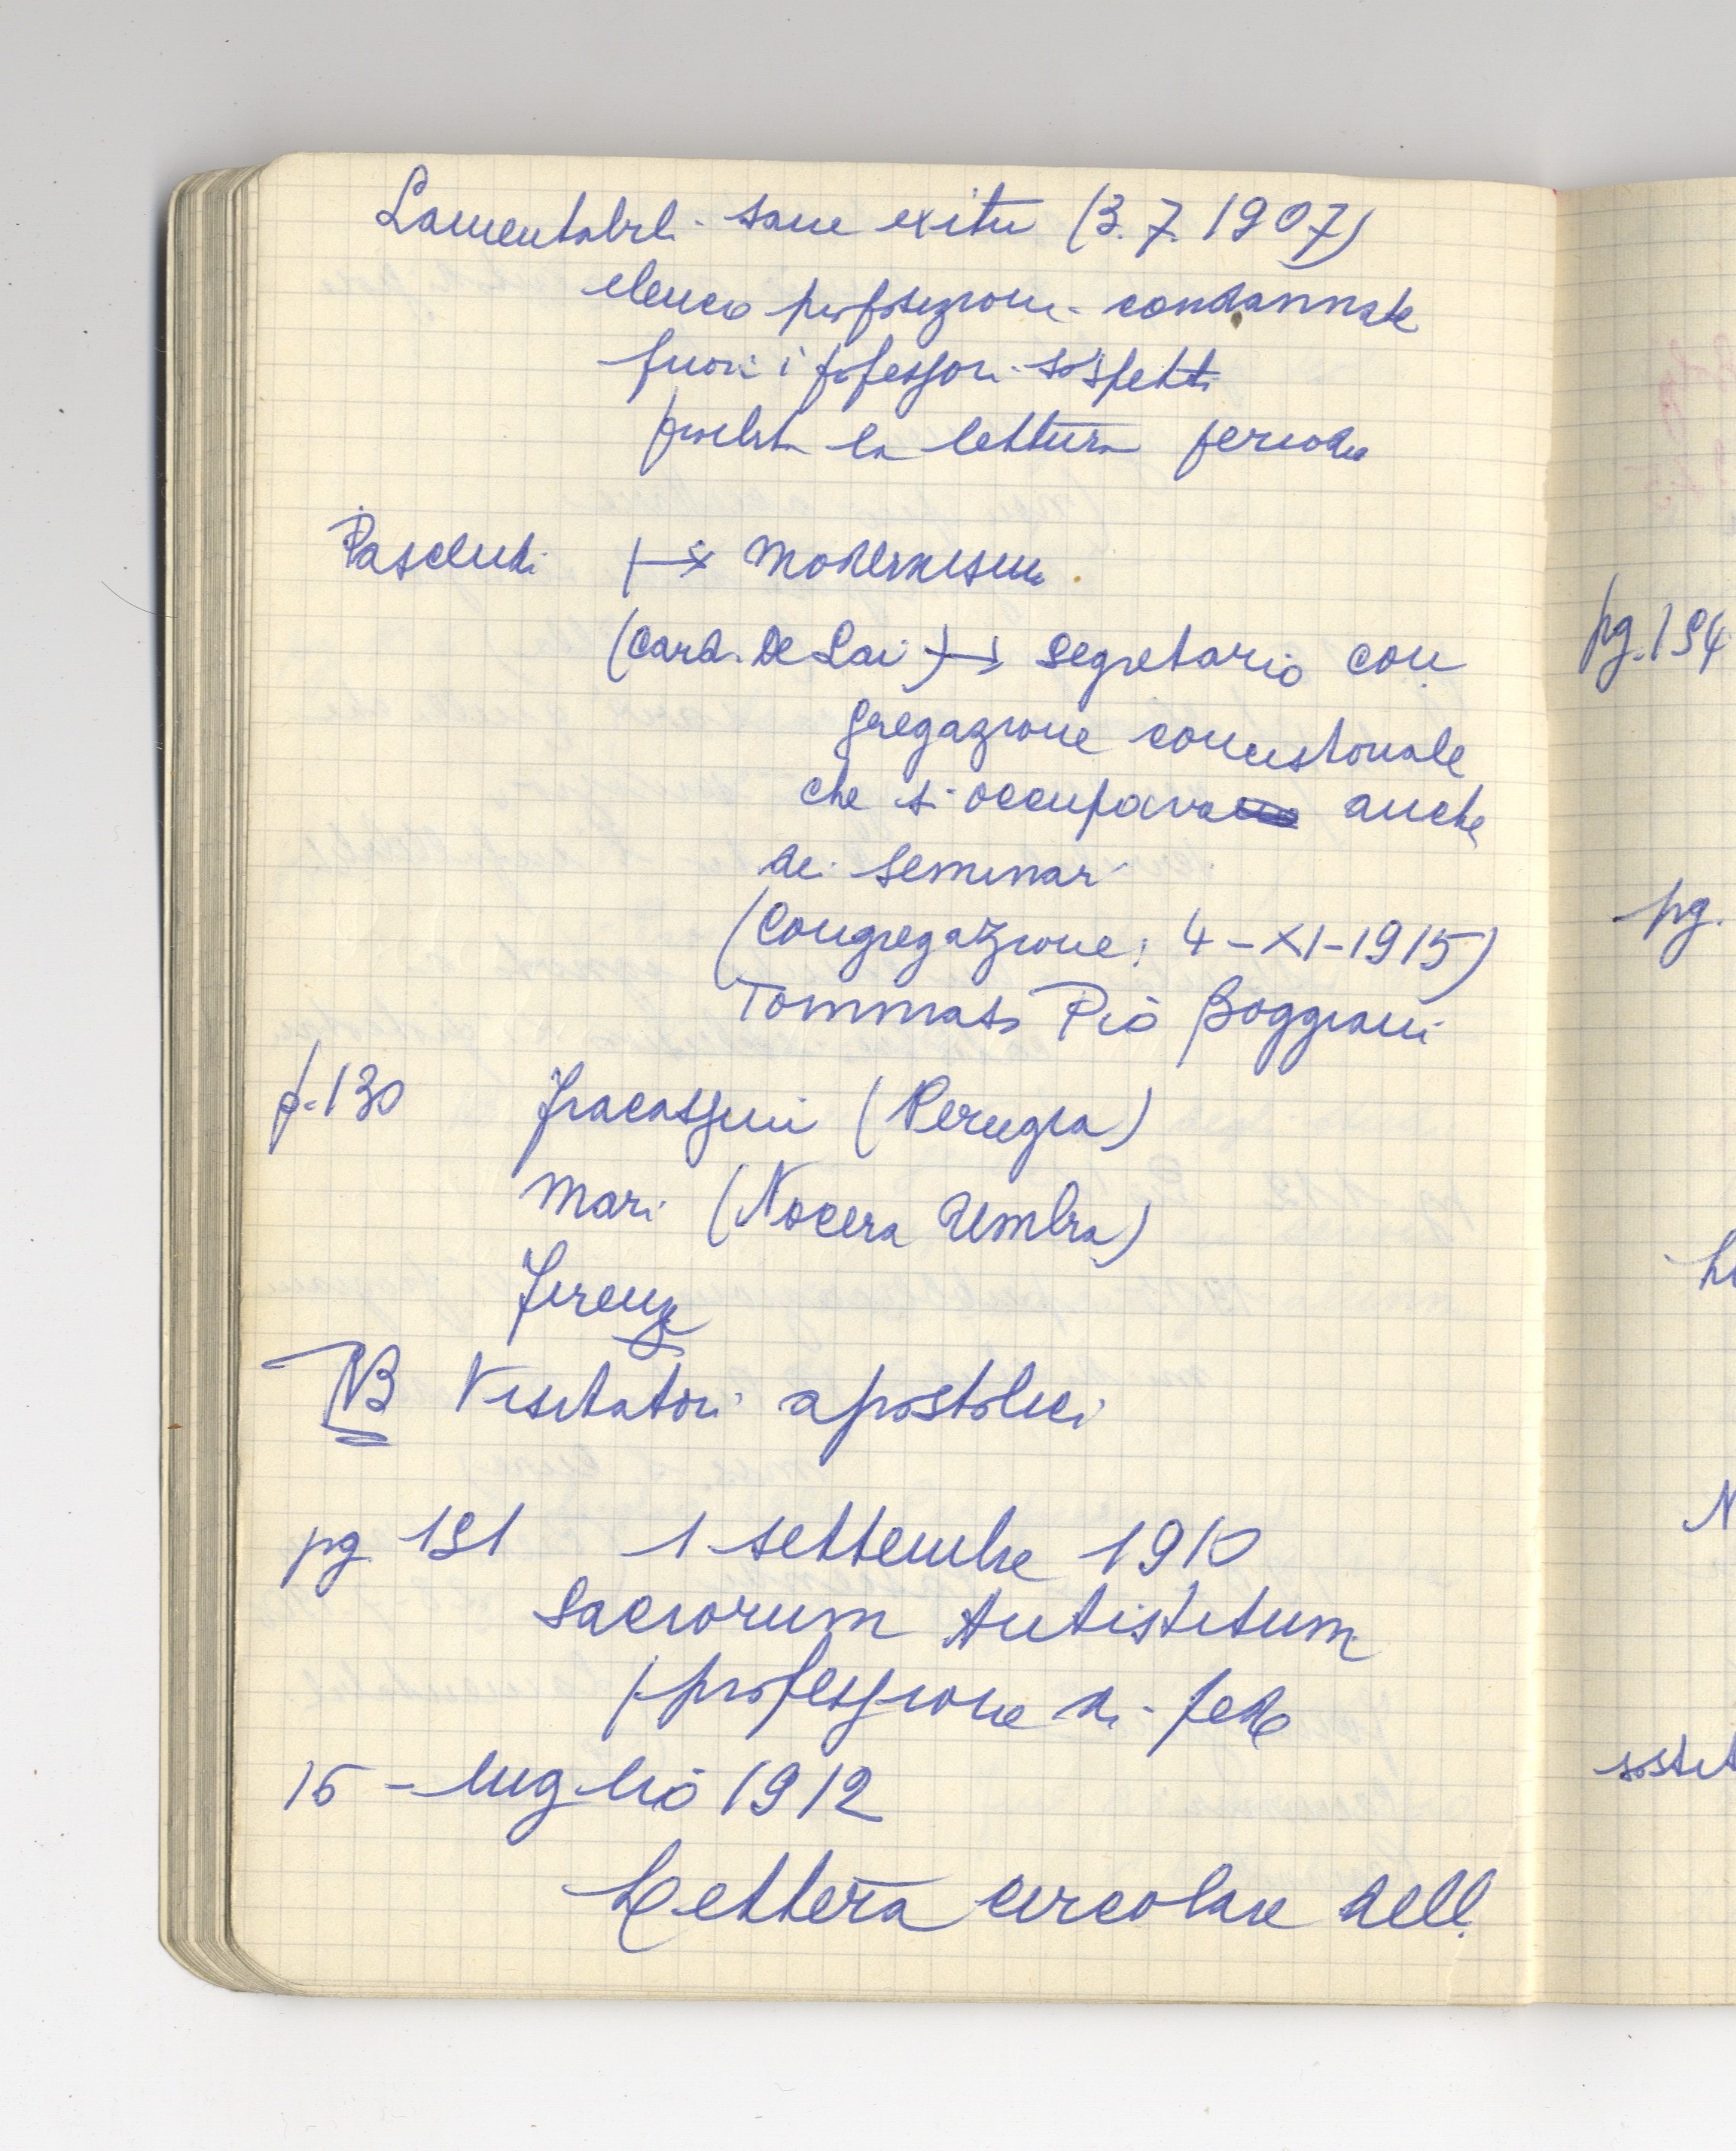 Lamentabili sane exitu (3.7.1907)
elenco proposizioni condannate
fuori i professori sospetti
proibita la lettura periodici
Pascendi → modernismo.
(Card. De Lai) → segretario con
gregazione concistoriale
che si occupava anche
dei seminari
(Congregazione: 4-XI-1915)
Tommaso Pio Boggiani
p. 130 Fracassini (Perugia)
Mari (Nocera Umbra)
Firenze
NB Visitatori apostolici
pg 131 1 settembre 1910
Sacrorum Antistitum
professione di fede
15 - luglio 1912
Lettera circolare dell
pg. 194
pg.
N
sostit